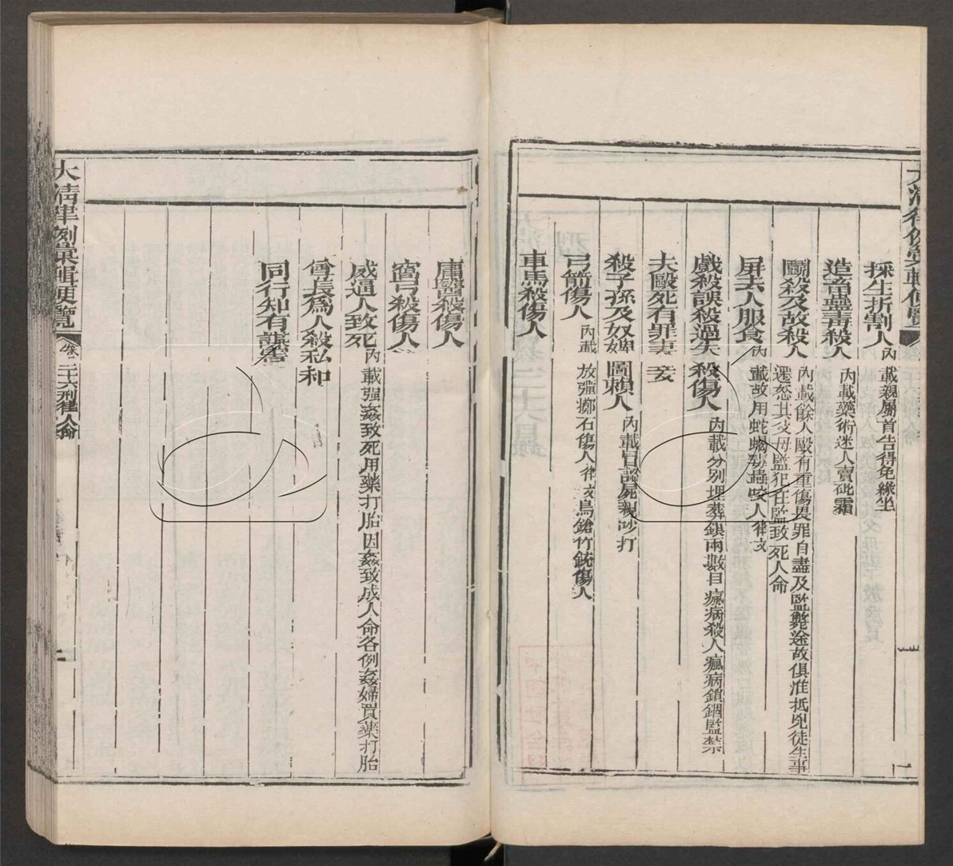 大清律例彙輯便覽
採生折割人 內載親屬首告得免緣坐
造畜蠱毒殺人 內載藥術迷人賣砒霜
鬭毆及故殺人 內載餘人毆有重傷畏罪自盡及監斃途故俱准抵兇徒生事
遷怒其父母監犯在監致死人命
屏去人服食 內載故用蛇蝎毒蟲咬人律文
戲殺誤殺過失殺傷人 內載分別埋葬銀兩數目瘋病殺人瘋病鎖錮監禁
夫毆死有罪妻妾
殺子孫及奴婢圖賴人 內載冒認屍親吵打
弓箭傷人 內載放彈擲石傷人律文鳥鎗竹銃傷人
車馬殺傷人
庸醫殺傷人
窩弓殺傷人
威逼人致死 內載強姦致死用藥打胎因姦致成人命各例姦婦買藥打胎
尊長為人殺私和
同行知有謀害
大清律例彙輯便覽 卷二十六刑律人命 二